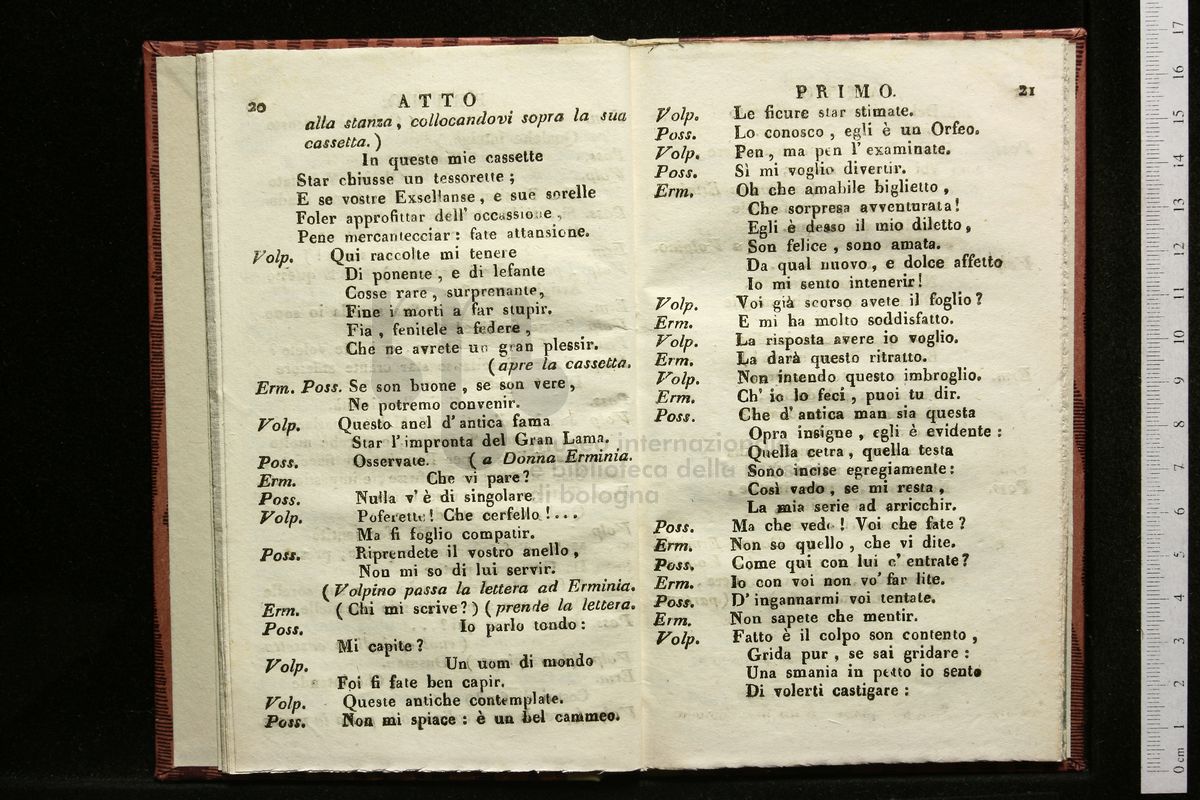 20
ATTO
alla stanza, collocandovi sopra la sua
cassetta.)
In queste mie cassette
Star chiusse un tessorette;
E se vostre Exsellanse, e sue sorelle
Foler approfittar dell' occassione,
Pene mercantecciar: fate attansione.
Volp. Qui raccolte mi tenere
Di ponente, e di lefante
Cosse rare, surprenante,
Fine i morti a far stupir.
Fia, fenitele a federe,
Che ne avrete un gran plessir.
(apre la cassetta.
Erm. Poss. Se son buone, se son vere,
Ne potremo convenir.
Volp. Questo anel d'antica fama
Star l'impronta del Gran Lama.
Poss. Osservate. (a Donna Erminia.
Erm. Che vi pare?
Poss. Nulla v'è di singolare
Volp. Poferette! Che cerfello!...
Ma fi foglio compatir.
Poss. Riprendete il vostro anello,
Non mi so di lui servir.
(Volpino passa la lettera ad Erminia.
Erm. (Chi mi scrive?) (prende la lettera.
Poss. Io parlo tondo:
Mi capite?
Volp. Un uom di mondo
Foi fi fate ben capir.
Volp. Queste antiche contemplate.
Poss. Non mi spiace: è un bel cammeo.
PRIMO.
21
Volp. Le ficure star stimate.
Poss. Lo conosco, egli è un Orfeo.
Volp. Pen, ma pen l'examinate.
Poss. Sì mi voglio divertir.
Erm. Oh che amabile biglietto,
Che sorpresa avventurata!
Egli è desso il mio diletto,
Son felice, sono amata.
Da qual nuovo, e dolce affetto
Io mi sento intenerir!
Volp. Voi già scorso avete il foglio?
Erm. E mi ha molto soddisfatto.
Volp. La risposta avere io voglio.
Erm. La darà questo ritratto.
Volp. Non intendo questo imbroglio.
Erm. Ch' io lo feci, puoi tu dir.
Poss. Che d'antica man sia questa
Opra insigne, egli è evidente:
Quella cetra, quella testa
Sono incise egregiamente:
Così vado, se mi resta,
La mia serie ad arricchir.
Poss. Ma che vedo! Voi che fate?
Erm. Non so quello, che vi dite.
Poss. Come qui con lui c'entrate?
Erm. Io con voi non vo' far lite.
Poss. D'ingannarmi voi tentate.
Erm. Non sapete che mentir.
Volp. Fatto è il colpo son contento,
Grida pur, se sai gridare:
Una smania in petto io sento
Di volerti castigare:
internazionale
e biblioteca della
di bologna
0 cm 1 2 3 4 5 6 7 8 9 10 11 12 13 14 15 16 17